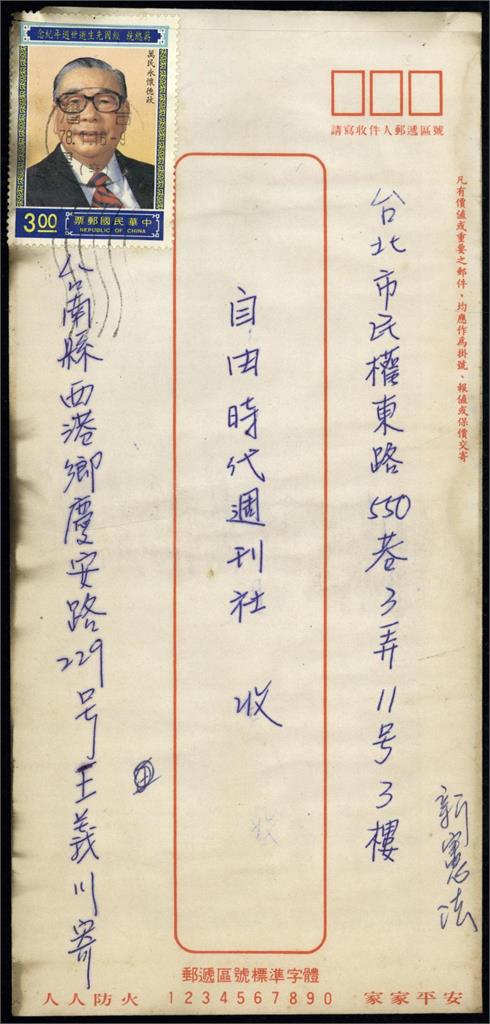 蔣總統 經國先生逝世週年紀念
萬民永懷德政
3.00
中華民國郵票
REPUBLIC OF CHINA
請寫收件人郵遞區號
凡有價值或重要之郵件，均應作為掛號、報值或保價交寄
台北市民權東路550巷3弄11号3樓
自由時代週刊社 收
台南縣西港鄉慶安路229号王義川寄
新憲法
郵遞區號標準字體
人人防火 1234567890 家家平安